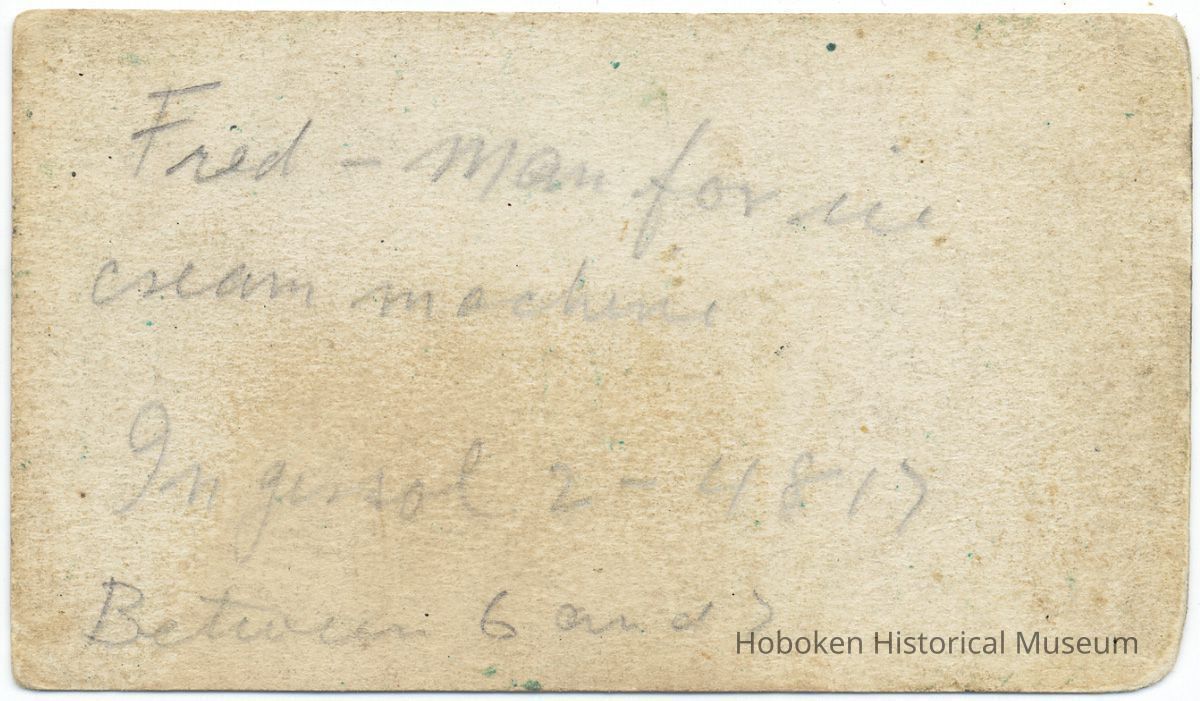 Fred - Man for ice
cream machine
Ingersol 2 - 4817
Between 6 and 7
Hoboken Historical Museum